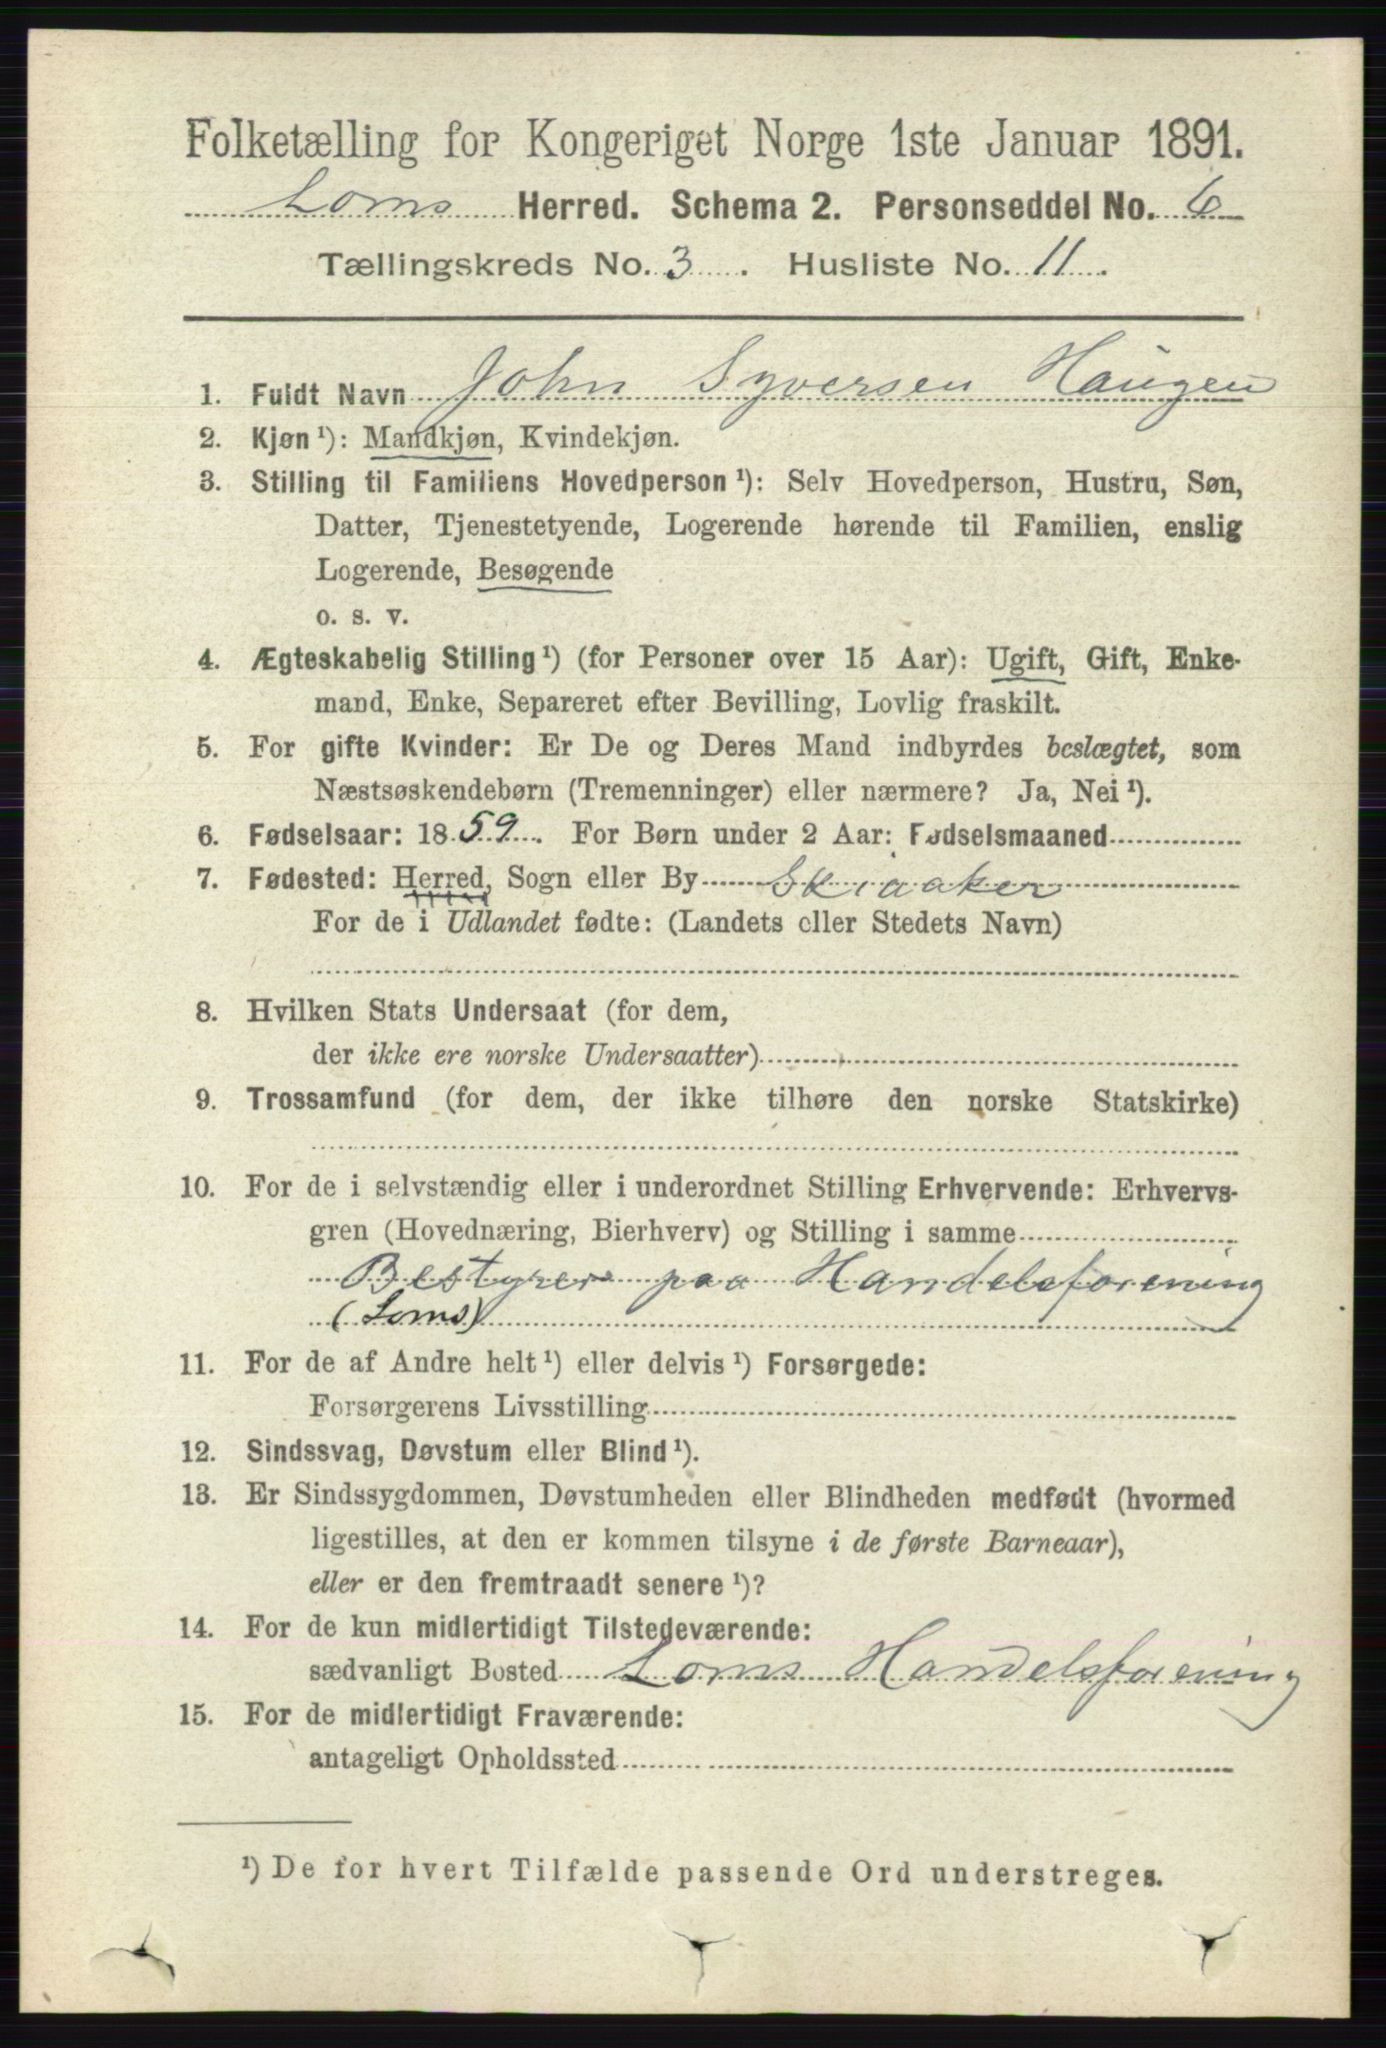 Folketælling for Kongeriget Norge 1ste Januar 1891.
Loms Herred. Schema 2. Personseddel No. 6
Tællingskreds No. 3. Husliste No. 11.
1. Fuldt Navn John Syversen Haugen
2. Kjøn¹): Mandkjøn, Kvindekjøn.
3. Stilling til Familiens Hovedperson¹): Selv Hovedperson, Hustru, Søn,
Datter, Tjenestetyende, Logerende hørende til Familien, enslig
Logerende, Besøgende
o. s. v.
4. Ægteskabelig Stilling¹) (for Personer over 15 Aar): Ugift, Gift, Enke-
mand, Enke, Separeret efter Bevilling, Lovlig fraskilt.
5. For gifte Kvinder: Er De og Deres Mand indbyrdes beslægtet, som
Næstsøskendebørn (Tremenninger) eller nærmere? Ja, Nei¹).
6. Fødselsaar: 1859. For Børn under 2 Aar: Fødselsmaaned
7. Fødested: Herred, Sogn eller By Skiaaker
For de i Udlandet fødte: (Landets eller Stedets Navn)
8. Hvilken Stats Undersaat (for dem,
der ikke ere norske Undersaatter)
9. Trossamfund (for dem, der ikke tilhøre den norske Statskirke)
10. For de i selvstændig eller i underordnet Stilling Erhvervende: Erhvervs-
gren (Hovednæring, Bierhverv) og Stilling i samme
Bestyrer paa Handelsforening
(Loms)
11. For de af Andre helt¹) eller delvis¹) Forsørgede:
Forsørgerens Livsstilling
12. Sindssvag, Døvstum eller Blind¹).
13. Er Sindssygdommen, Døvstumheden eller Blindheden medfødt (hvormed
ligestilles, at den er kommen tilsyne i de første Barneaar),
eller er den fremtraadt senere¹)?
14. For de kun midlertidigt Tilstedeværende:
sædvanligt Bosted Loms Handelsforening
15. For de midlertidigt Fraværende:
antageligt Opholdssted
¹) De for hvert Tilfælde passende Ord understreges.